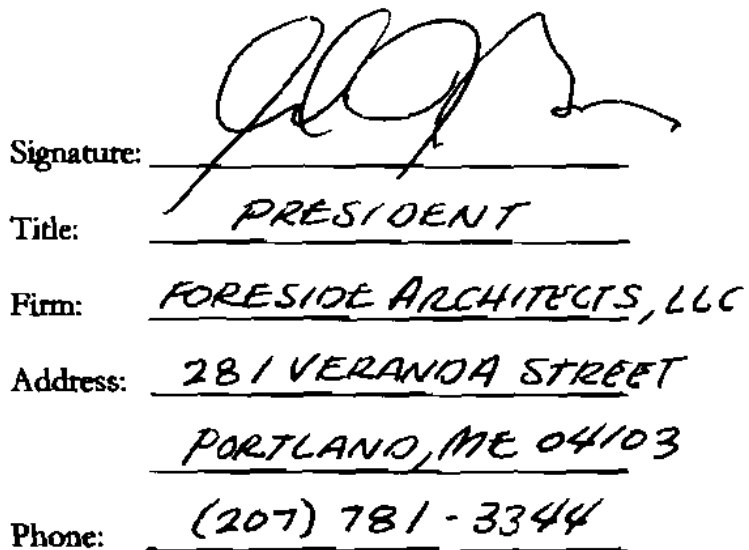 Signature:
Title: PRESIDENT
Firm: FORESIDE ARCHITECTS, LLC
Address: 281 VERANDA STREET
PORTLAND, ME 04103
Phone: (207) 781-3344